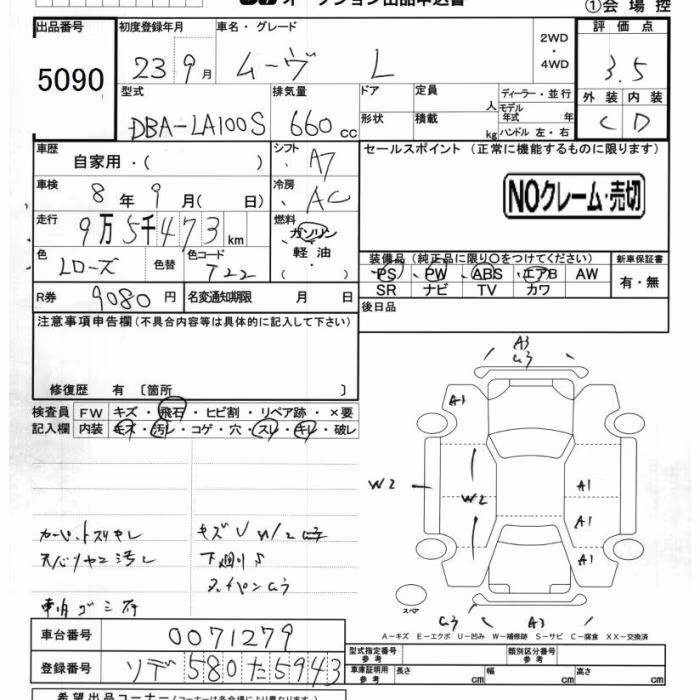 オークション出品申込書
①会場控
出品番号 初度登録年月 車名・グレード 2WD・4WD 評価点
5090 23 9月 ムーヴ L 3.5
型式 排気量 ドア 定員 人 ディーラー・並行 外装 内装
DBA-LA100S 660 cc 形状 積載 kg モデル年式 年 ハンドル 左・右 C D
車歴 自家用・( ) シフト A7 セールスポイント (正常に機能するものに限ります)
車検 8年 9月( 日) 冷房 AC NOクレーム・売切
走行 9万5千473 km 燃料 ガソリン・軽油・( )
色 Lローズ 色替 色コード T22
装備品 (純正品に限り○をつけてください) 新車保証書
PS PW ABS エアB AW 有・無
SR ナビ TV カワ
R券 9080円 名変通知期限 月 日 後日品
注意事項申告欄 (不具合内容等は具体的に記入して下さい)
修復歴 有 〔箇所 〕
検査員記入欄 FW キズ・飛石・ヒビ割・リペア跡・×要
内装 キズ・汚レ・コゲ・穴・スレ・キレ・破レ
A3
A1
W2 W2 A1
A1
A1
スペア
A3
A-キズ E-エクボ U-凹み W-補修跡 S-サビ C-腐食 XX-交換済
車台番号 0071279
登録番号 ソデ 580 た 5943
型式指定番号 参考 類別区分番号 参考
車庫証明用 参考 長さ cm 幅 cm 高さ cm
希望出品コーナー